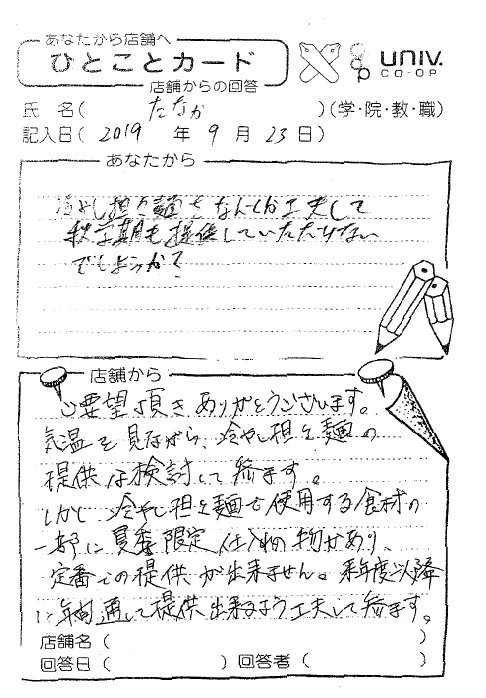 あなたから店舗へ
ひとことカード
店舗からの回答
UNIV.
CO-OP
氏 名( たなか )(学・院・教・職)
記入日( 2019 年 9 月 23 日)
あなたから
冷やし担々麺をなんとか工夫して
秋学期も提供していただけない
でしょうか?
店舗から
ご要望頂きありがとうございます。
気温を見ながら、冷やし担々麺の
提供は検討して参ります。
しかし、冷やし担々麺で使用する食材の
一部に夏季限定仕入れの物があり、
定番での提供が出来ません。来年度以降
に年間通して提供出来るよう工夫して参ります。
店舗名( )
回答日( ) 回答者( )